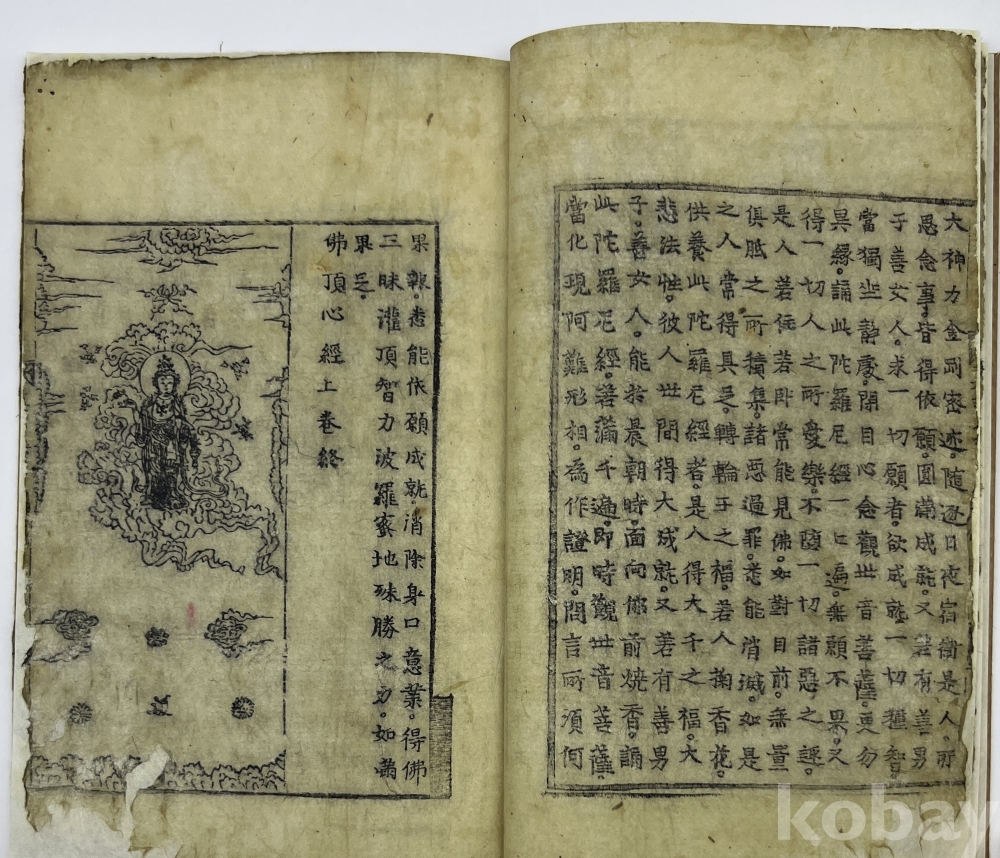 大神力金剛密迹隨逐日夜宿衛是人。所
思念事。皆得依願。圓滿成就。又若有善男
子善女人。求一切願者。欲成就一切種智。
當獨坐靜處。閉目心念觀世音菩薩。更勿
異緣。誦此陀羅尼經一七遍。無願不果。又
得一切人之所愛樂。不墮一切諸惡之趣。
是人若住若臥常能見佛。如對目前。無量
俱胝之所積集。諸惡過罪。悉能消滅。如是
之人常得具足。轉輪王之福。若人掬香花。
供養此陀羅尼經者。是人得大千之福。大
悲法性。彼人世間得大成就。又若有善男
子。善女人。能於晨朝時。面向佛前燒香。誦
此陀羅尼經。若滿千遍。即時觀世音菩薩。
當化現阿難形相。為作證明。問言所須何
果報。悉能依願成就。消除身口意業。得佛
三昧灌頂智力波羅蜜地殊勝之力。如
果足。
佛頂心經上卷終
kobay